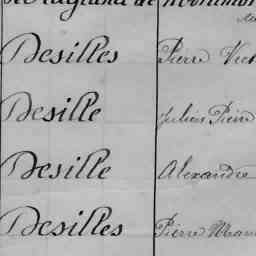 Desilles Pierre Vict
Desille Julien Pierre
Desille Alexandre
Desilles Pierre